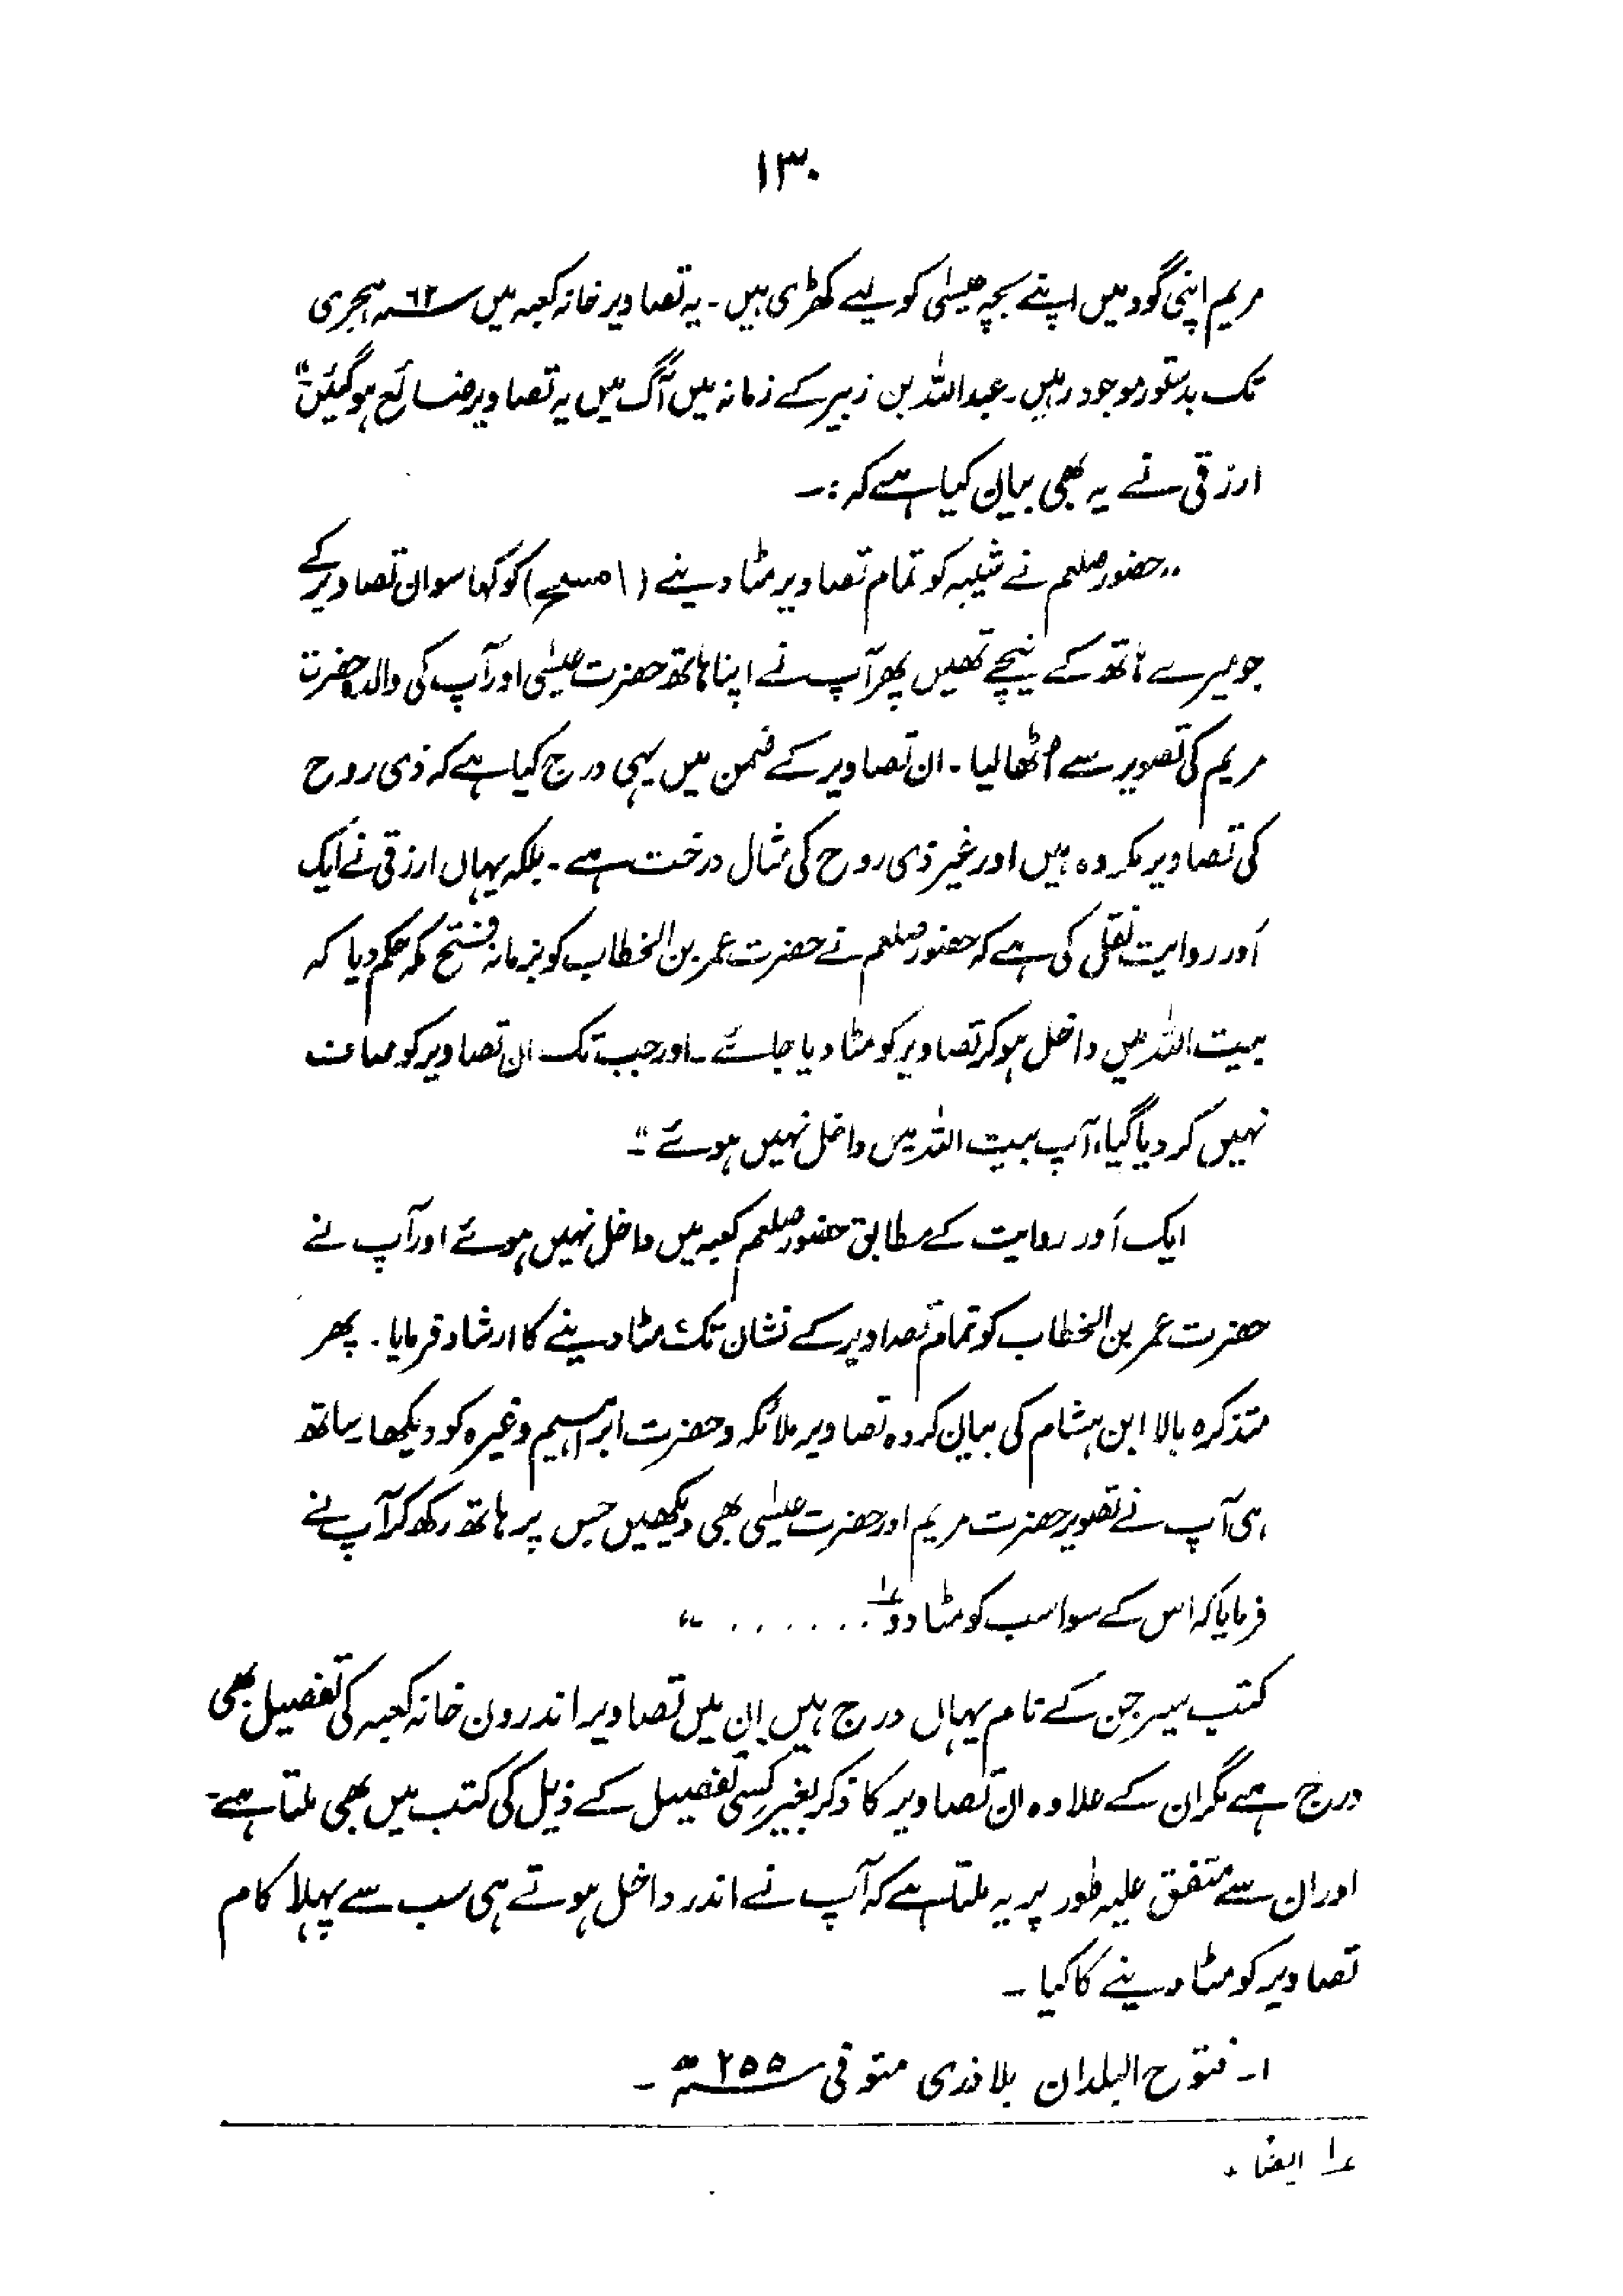 ۱۳۰
مریم اپنی گود میں اپنے بچہ عیسٰی کو لیے کھڑی ہیں۔ یہ تصاویر خانہ کعبہ میں سنہ ۶۲ ہجری
تک بدستور موجود رہیں۔ عبداللہ بن زبیر کے زمانہ میں آگ میں یہ تصاویر ضائع ہو گئیں"
ارزقی نے یہ بھی بیان کیا ہے کہ :۔
"حضور صلعم نے شیبہ کو تمام تصاویر مٹا دینے (امسح) کو کہا سوا ان تصاویر کے
جو میرے ہاتھ کے نیچے تھیں پھر آپ نے اپنا ہاتھ حضرت عیسٰی اور آپ کی والدہ حضرت
مریم کی تصویر سے اُٹھا لیا۔ ان تصاویر کے ضمن میں یہی درج کیا ہے کہ ذی روح
کی تصاویر مکروہ ہیں اور غیر ذی روح کی مثال درخت ہے۔ بلکہ یہاں ارزقی نے ایک
اَور روایت نقل کی ہے کہ حضور صلعم نے حضرت عمر بن الخطاب کو بزمانہ فتح مکہ حکم دیا کہ
بیت اللہ میں داخل ہو کر تصاویر کو مٹا دیا جائے۔ اور جب تک ان تصاویر کو صاف
نہیں کر دیا گیا، آپ بیت اللہ میں داخل نہیں ہوئے"۔
ایک اَور روایت کے مطابق حضور صلعم کعبہ میں داخل نہیں ہوئے اور آپ نے
حضرت عمر بن الخطاب کو تمام تصاویر کے نشان تک مٹا دینے کا ارشاد فرمایا۔ پھر
متذکرہ بالا ابن ہشام کی بیان کردہ تصاویر ملائکہ و حضرت ابراہیم وغیرہ کو دیکھا۔ ساتھ
ہی آپ نے تصویر حضرت مریم اور حضرت عیسٰی بھی دیکھیں جس پر ہاتھ رکھ کر آپ نے
فرمایا کہ اس کے سوا سب کو مٹا دو ؎۱ . . . . . . . "
کتب سیر جن کے نام یہاں درج ہیں ان میں تصاویر اندرون خانہ کعبہ کی تفصیل بھی
درج ہے مگر ان کے علاوہ ان تصاویر کا ذکر بغیر کسِی تفصیل کے ذیل کی کتب میں بھی ملتا ہے۔
اور ان سے متفق علیہ طور پر یہ ملتا ہے کہ آپ نے اندر داخل ہوتے ہی سب سے پہلا کام
تصاویر کو مٹا دینے کا کیا ۔
۱۔ فتوح البلدان بلاذری متوفی سنہ ۲۵۵ھ ۔
؎۱ ایضاً ۔